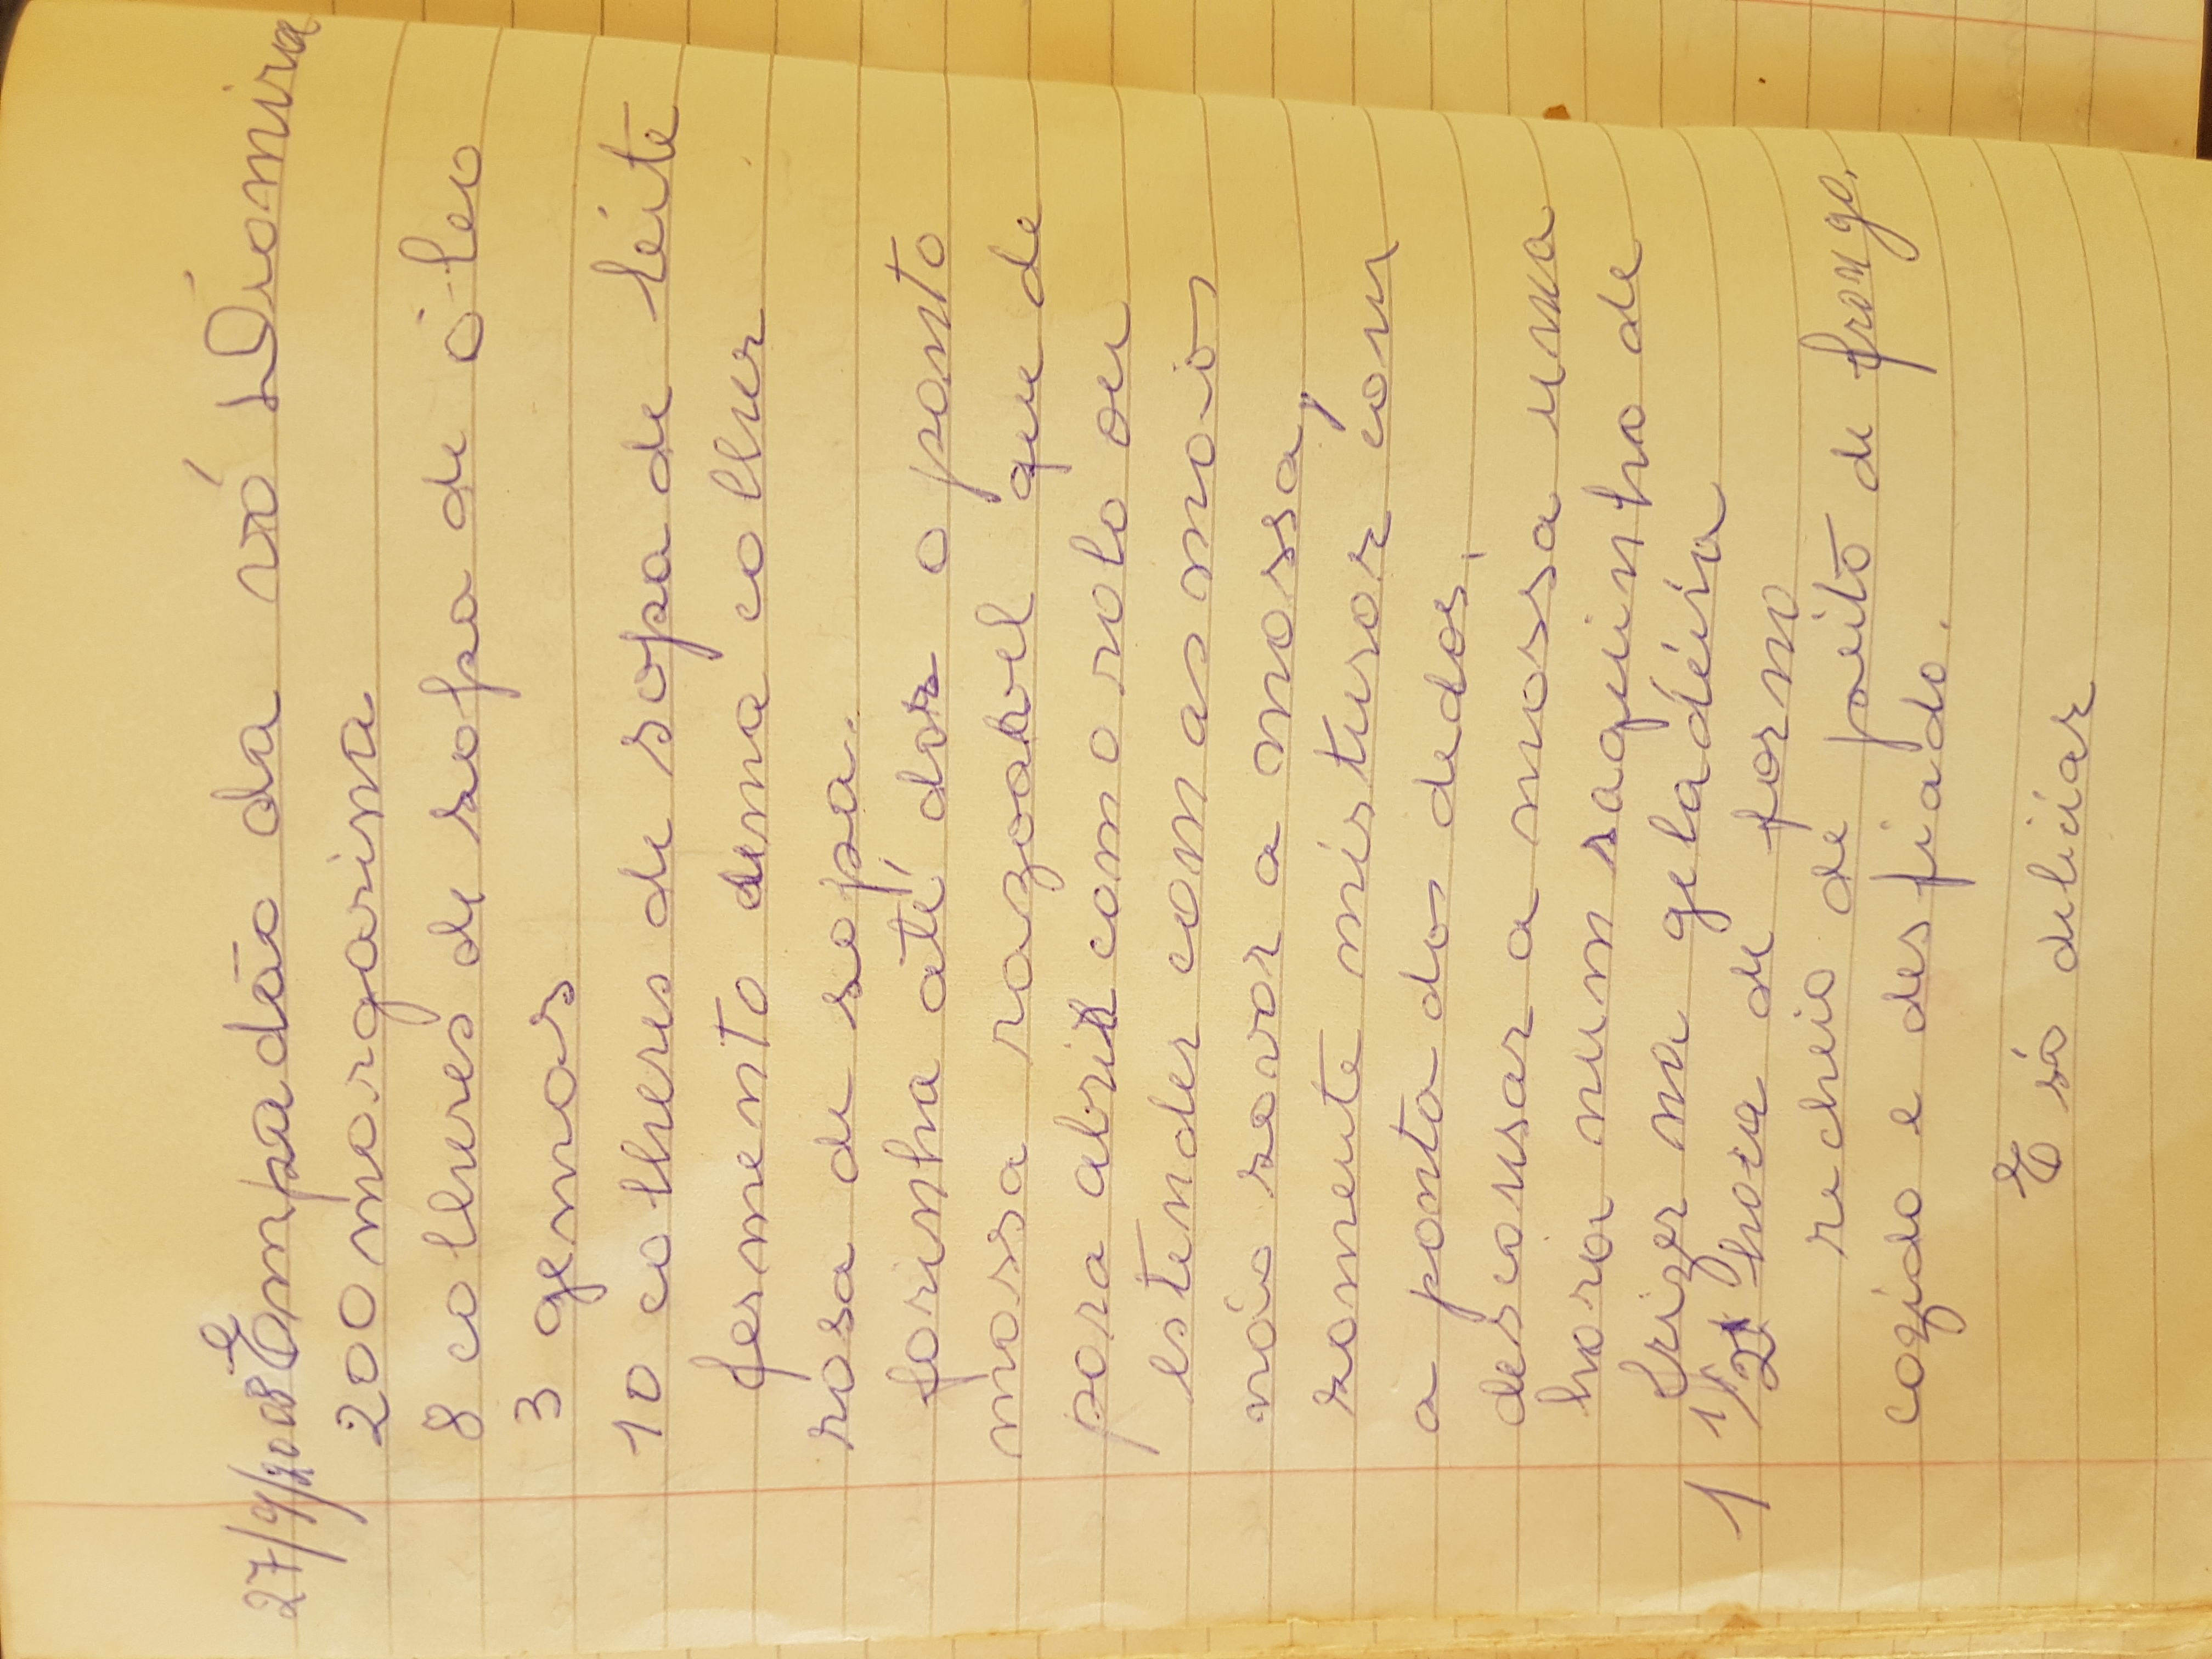 27/9/2008 Empadão da vó Diomira
200 margarina
8 colheres de sopa de óleo
3 gemas
10 colheres de sopa de leite
fermento uma colher
rasa de sopa.
farinha até dar o ponto
massa razoavel que de
para abrir com o rolo ou
estender com as mãos
não sovar a massa,
somente misturar com
a ponta dos dedos,
descansar a massa uma
hora num saquinho de
frizer na geladeira
1 1/2 hora de forno
recheio de peito de frango,
cozido e desfiado.
E só deliciar